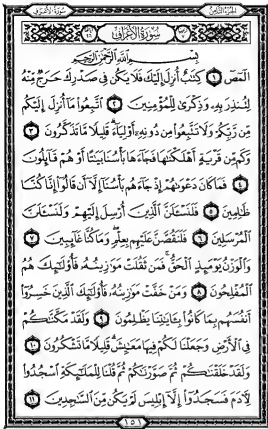 الجزء الثامن سورة الأعراف
سورة الأعراف
بسم الله الرحمن الرحيم
المص ١ كتب أنزل إليك فلا يكن في صدرك حرج منه
لتنذر به وذكرى للمؤمنين ٢ اتبعوا ما أنزل إليكم
من ربكم ولا تتبعوا من دونه أولياء قليلا ما تذكرون ٣
وكم من قرية أهلكنها فجاءها بأسنا بيتا أو هم قائلون
٤ فما كان دعوىهم إذ جاءهم بأسنا إلا أن قالوا إنا كنا
ظلمين ٥ فلنسئلن الذين أرسل إليهم ولنسئلن
المرسلين ٦ فلنقصن عليهم بعلم وما كنا غائبين ٧
والوزن يومئذ الحق فمن ثقلت موزينه فأولئك هم
المفلحون ٨ ومن خفت موزينه فأولئك الذين خسروا
أنفسهم بما كانوا بئايتنا يظلمون ٩ ولقد مكنكم
في الأرض وجعلنا لكم فيها معيش قليلا ما تشكرون ١٠
ولقد خلقنكم ثم صورنكم ثم قلنا للملئكة اسجدوا
لأدم فسجدوا إلا إبليس لم يكن من السجدين ١١
١٥١